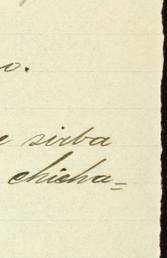 o.
e sirba
chicha=